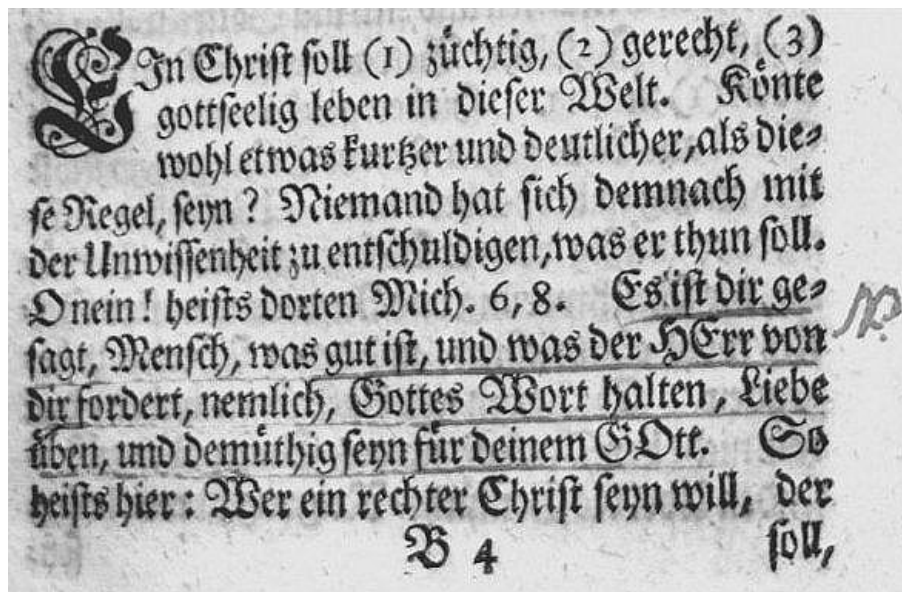 EJn Christ soll (1) züchtig, (2) gerecht, (3)
gottseelig leben in dieser Welt. Könte
wohl etwas kurtzer und deutlicher, als die-
se Regel, seyn? Niemand hat sich demnach mit
der Unwissenheit zu entschuldigen, was er thun soll.
O nein! heists dorten Mich. 6, 8. Es ist dir ge-
sagt, Mensch, was gut ist, und was der HErr von
dir fordert, nemlich, Gottes Wort halten, Liebe
üben, und demüthig seyn für deinem GOtt. So
heists hier: Wer ein rechter Christ seyn will, der
B 4 soll,